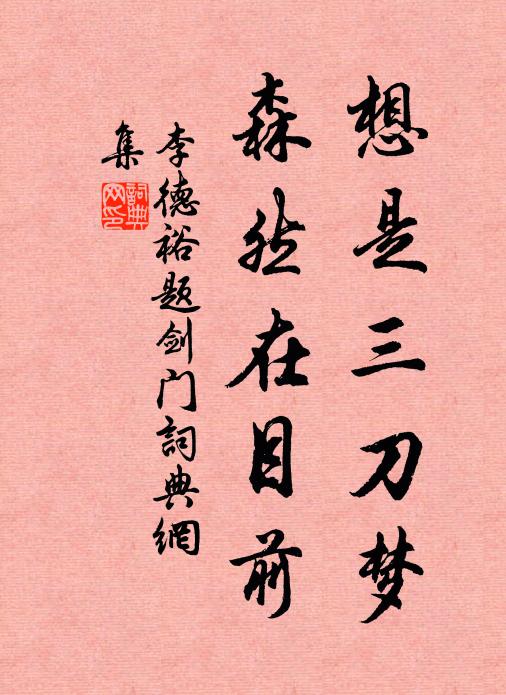 想是三刀梦
森然在目前
李德裕题剑门詞典網
集
詞典网印